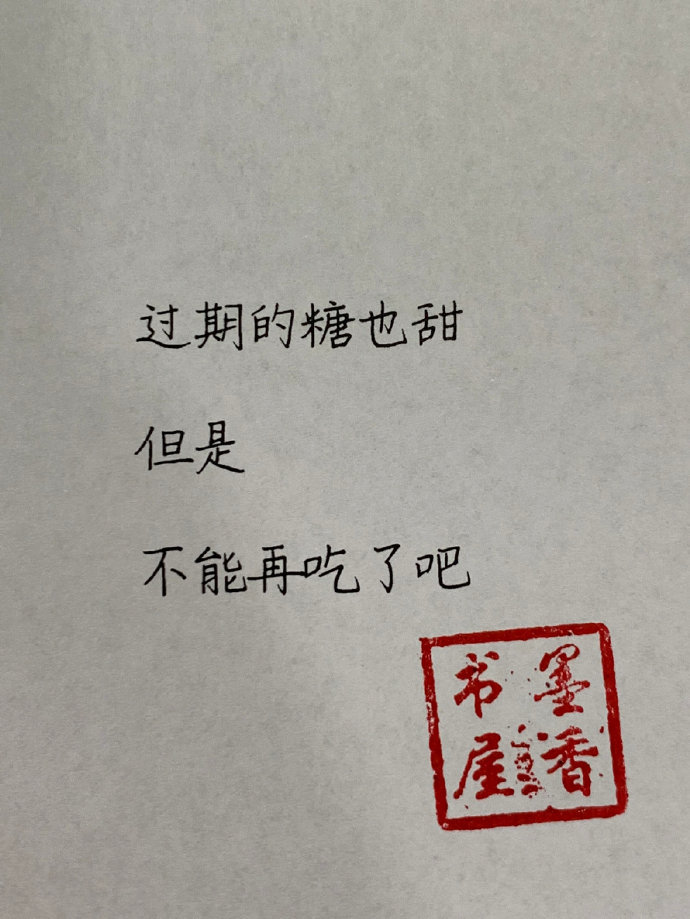 过期的糖也甜
但是
不能再吃了吧
墨香
书屋